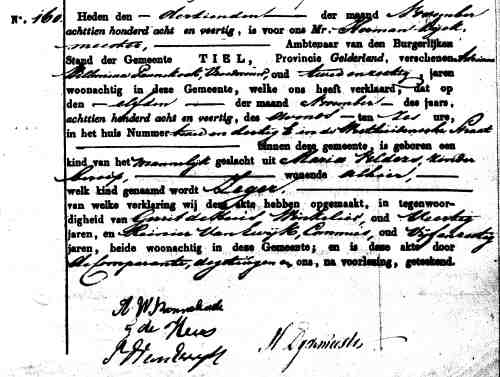 N°. 160.
Heden den dertienden der maand November
achttien honderd acht en veertig, is voor ons Mr. Herman Dyck
meester, Ambtenaar van den Burgerlijken
Stand der Gemeente TIEL, Provincie Gelderland, verschenen Adriana
Wilhelmina, oud twee en zestig jaren
woonachtig in deze Gemeente, welke ons heeft verklaard, dat op
den elfden der maand November des jaars,
achttien honderd acht en veertig, des avonds ten zes ure,
in het huis Nummer twee en dertig in de Straat
binnen deze gemeente, is geboren een
kind van het mannelijk geslacht uit Maria Kelders, zonder
beroep, wonende alhier,
welk kind genaamd wordt Leger.
van welke verklaring wij deze akte hebben opgemaakt, in tegenwoor-
digheid van Gerrit de Heus, Winkelier, oud Veertig
jaren, en Reinier van Ewijk, Commies, oud Vijfenveertig
jaren, beide woonachtig in deze Gemeente; en is deze akte door
de Comparante, de getuigen en ons, na voorlezing, geteekend.
A. W.
G de Heus
R V Ewijk
H Dyckmeester